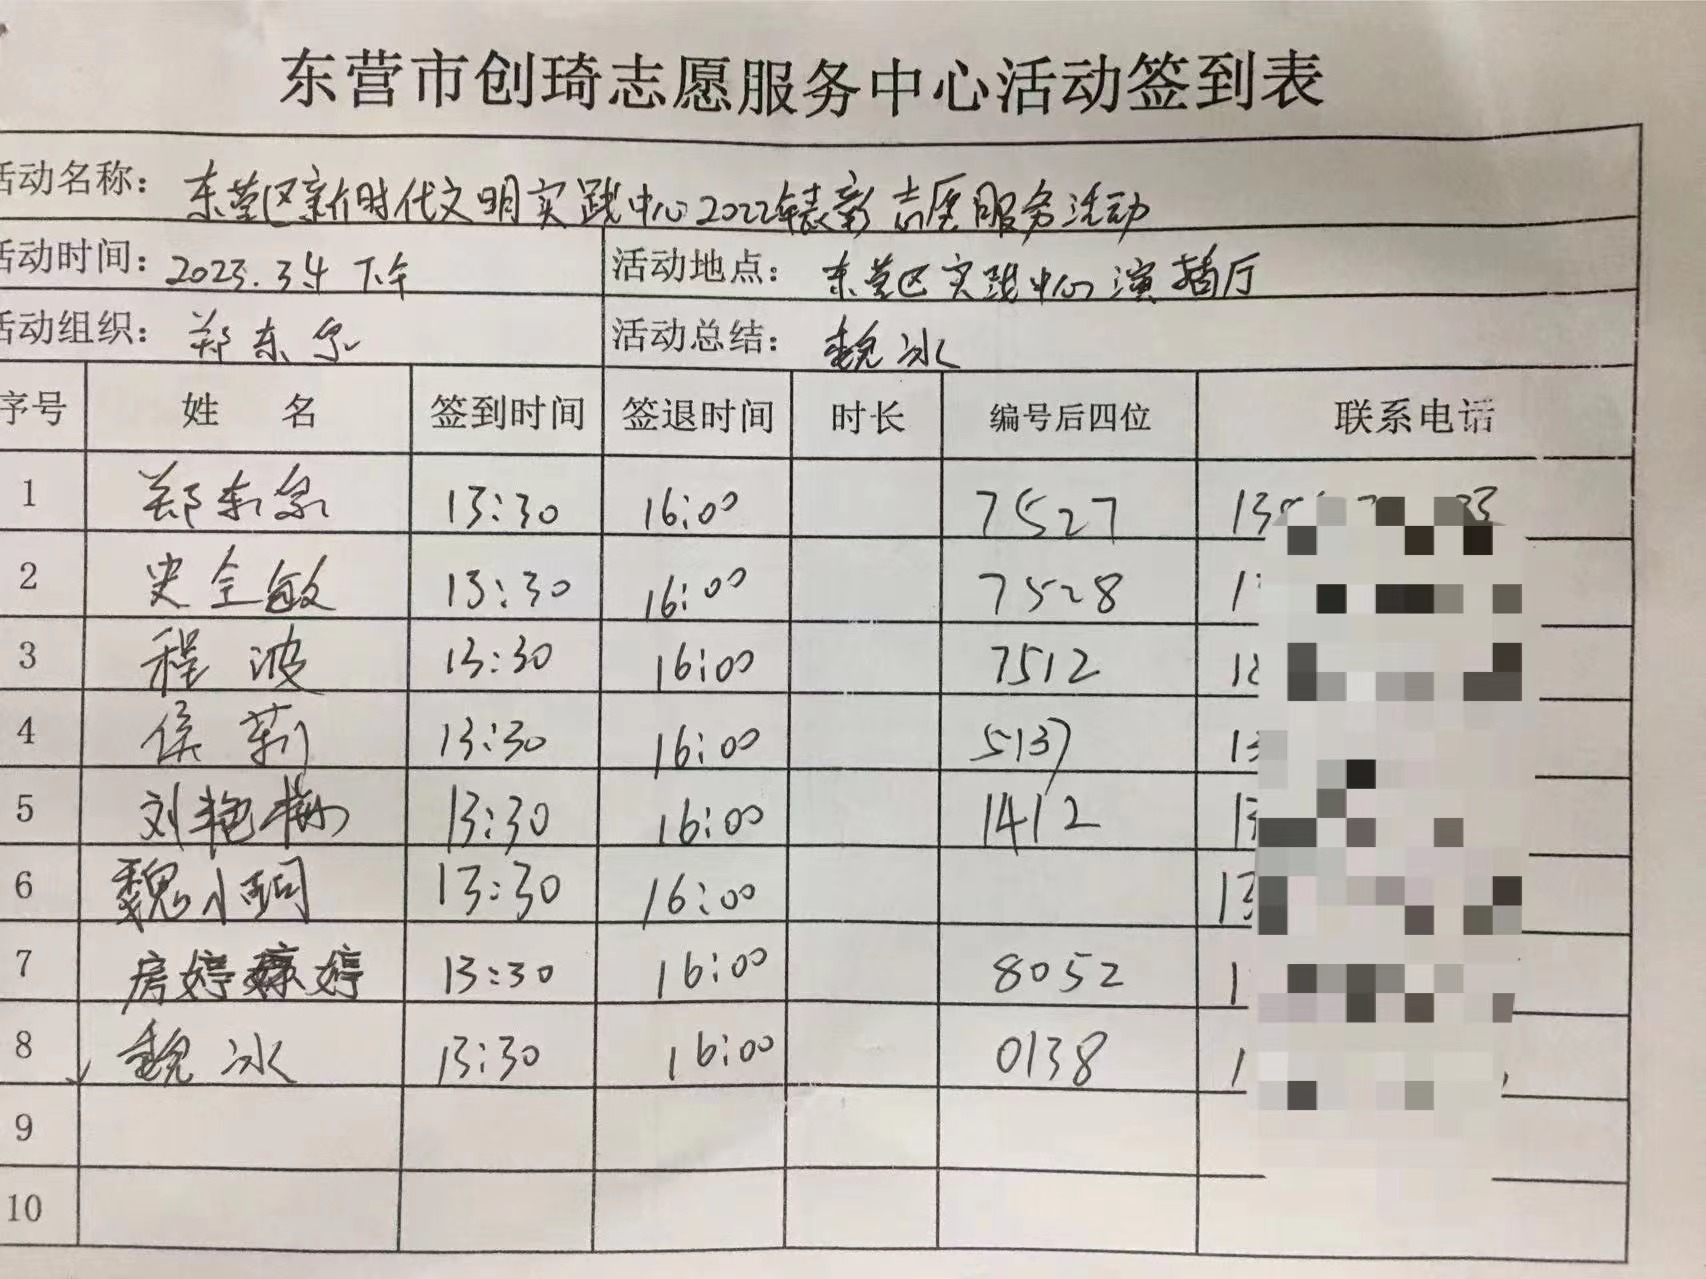 东营市创琦志愿服务中心活动签到表
活动名称： 东营区新时代文明实践中心2022年表彰志愿服务活动
活动时间： 2023.3.4 下午 活动地点： 东营区实践中心演播厅
活动组织： 郑东泉 活动总结： 魏冰
序号 姓 名 签到时间 签退时间 时长 编号后四位 联系电话
1 郑东泉 13:30 16:00 7527
2 史全敏 13:30 16:00 7528
3 程波 13:30 16:00 7512
4 侯莉 13:30 16:00 5137
5 刘艳梅 13:30 16:00 1412
6 魏小珂 13:30 16:00
7 房婷婷 13:30 16:00 8052
8 魏冰 13:30 16:00 0138
9
10